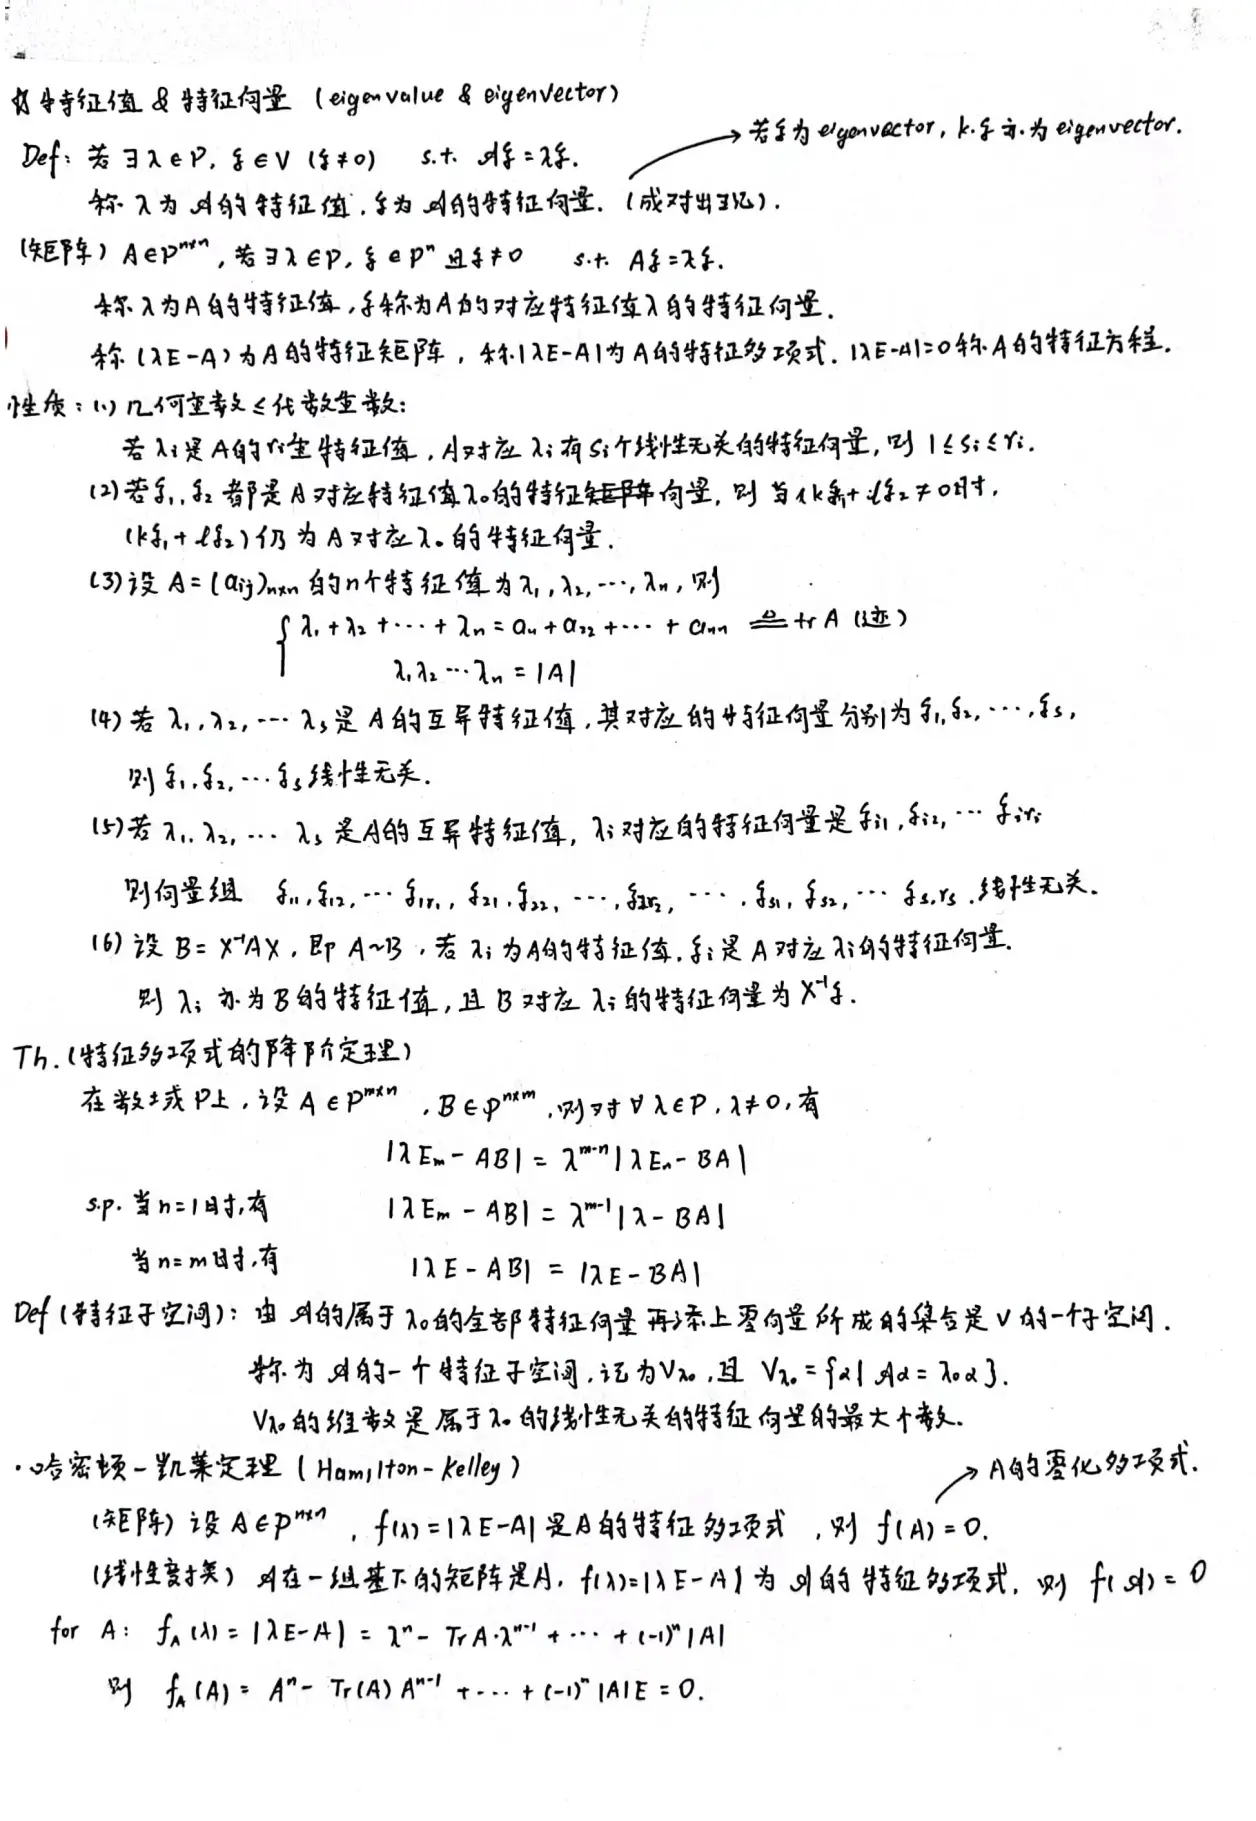 特征值 & 特征向量 (eigenvalue & eigenvector)
→ 若ξ为 eigenvector, k·ξ 亦为 eigenvector.
Def: 若 ∃λ∈P, ξ∈V (ξ≠0) s.t. 𝒜ξ=λξ.
称 λ 为 𝒜的特征值, ξ为 𝒜的特征向量. (成对出现).
(矩阵) A∈Pⁿˣⁿ, 若∃λ∈P, ξ∈Pⁿ 且ξ≠0 s.t. Aξ=λξ.
称 λ为A的特征值, ξ称为A的对应特征值λ的特征向量.
称 (λE-A) 为A的特征矩阵, 称|λE-A|为A的特征多项式. |λE-A|=0称A的特征方程.
性质: (1) 几何重数≤代数重数:
若λi是A的ri重特征值, A对应λi有si个线性无关的特征向量, 则 1≤si≤ri.
(2) 若ξ₁, ξ₂ 都是A对应特征值λ₀的特征矩阵向量, 则 当(kξ₁+lξ₂≠0时,
(kξ₁+lξ₂)仍为A对应λ₀的特征向量.
(3) 设 A=(aij)n×n 的n个特征值为λ₁,λ₂,···,λn, 则
{ λ₁+λ₂+···+λn = a₁₁+a₂₂+···+ann ≜ tr A (迹)
λ₁λ₂···λn = |A|
(4) 若 λ₁,λ₂,···λs是A的互异特征值, 其对应的特征向量分别为ξ₁,ξ₂,···,ξs,
则 ξ₁,ξ₂,···ξs线性无关.
(5) 若 λ₁,λ₂,···λs 是A的互异特征值, λi对应的特征向量是ξi1,ξi2,···ξiri
则向量组 ξ₁₁,ξ₁₂,···ξ1r₁, ξ₂₁,ξ₂₂,···,ξ2r₂,···,ξs1,ξs2,···ξsrs 线性无关.
(6) 设 B=X⁻¹AX, 即 A~B, 若λi为A的特征值, ξi是A对应λi的特征向量.
则 λi 亦为B的特征值, 且B对应λi的特征向量为X⁻¹ξ.
Th. (特征多项式的降阶定理)
在数域P上, 设 A∈Pᵐˣⁿ, B∈Pⁿˣᵐ, 则对∀λ∈P, λ≠0, 有
|λEm-AB| = λᵐ⁻ⁿ|λEn-BA|
s.p. 当n=1时, 有 |λEm-AB| = λᵐ⁻¹|λ-BA|
当n=m时, 有 |λE-AB| = |λE-BA|
Def (特征子空间): 由 𝒜的属于λ₀的全部特征向量再添上零向量所成的集合是V的一个子空间.
称为 𝒜的一个特征子空间, 记为Vλ₀, 且 Vλ₀={α| 𝒜α=λ₀α}.
Vλ₀的维数是属于λ₀的线性无关的特征向量的最大个数.
·哈密顿-凯莱定理 (Hamilton-Kelley)
→ A的零化多项式.
(矩阵) 设 A∈Pⁿˣⁿ, f(λ)=|λE-A|是A的特征多项式, 则 f(A)=0.
(线性变换) 𝒜在一组基下的矩阵是A, f(λ)=|λE-A| 为 𝒜的特征多项式, 则 f(𝒜)=0
for A: fA(λ)=|λE-A| = λⁿ-TrA·λⁿ⁻¹+···+(-1)ⁿ|A|
则 fA(A)= Aⁿ-Tr(A)Aⁿ⁻¹+···+(-1)ⁿ|A|E=0.